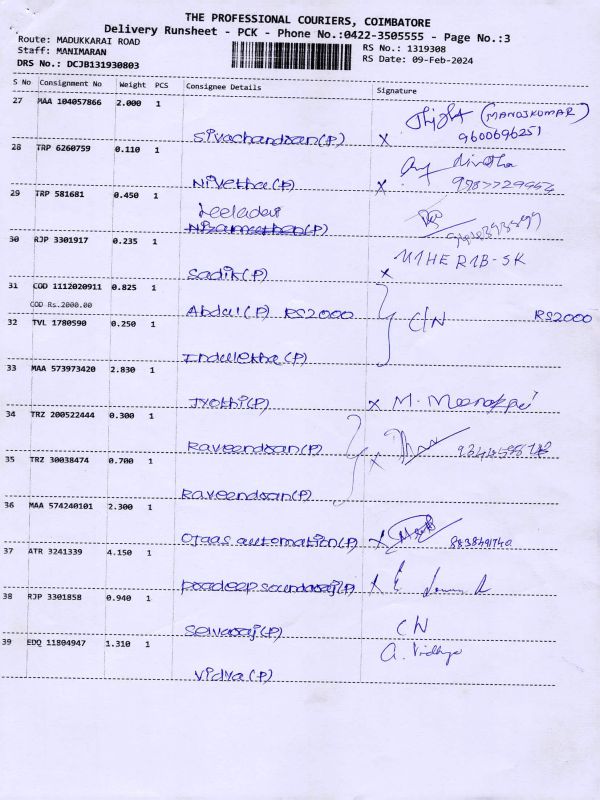 THE PROFESSIONAL COURIERS, COIMBATORE
Delivery Runsheet - PCK - Phone No.:0422-3505555 - Page No.:3
Route: MADUKKARAI ROAD
Staff: MANIMARAN
DRS No.: DCJB131930803
RS No.: 1319308
RS Date: 09-Feb-2024
S No Consignment No Weight PCS Consignee Details Signature
27 MAA 104057866 2.000 1
(MANOJKUMAR)
Sivachandran(P) X 9600696251
28 TRP 6260759 0.110 1
Nivetha(P) X
29 TRP 581681 0.450 1
Leeladevi
Nizamuthen(P)
30 RJP 3301917 0.235 1
Sadik(P) X
31 COD 1112020911 0.825 1
COD Rs.2000.00
Abdul(P) RS2000 C/N RS2000
32 TVL 1780590 0.250 1
Indulekha(P)
33 MAA 573973420 2.830 1
Jyothi(P) X M.
34 TRZ 200522444 0.300 1
Raveendran(P) X
35 TRZ 30038474 0.700 1
Raveendran(P)
36 MAA 574240101 2.300 1
Ojaas automation(P) X
37 ATR 3241339 4.150 1
Pradeep soundaraj(P) X
38 RJP 3301858 0.940 1
Selvaraj(P) CN
39 EDQ 11804947 1.310 1
A. Vidhya
Vidya(P)